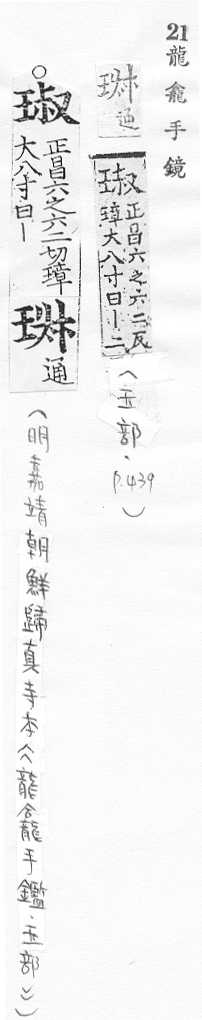 21龍龕手鏡
𤦻通
琡正昌六之六二反
璋大八寸曰丨二
(玉部·P.439)
琡正昌六之六二切璋
大八寸曰丨
通
(明嘉靖朝鮮歸真寺本《龍龕手鑑·玉部》)